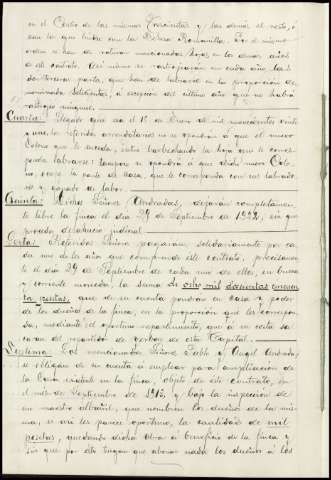 en el Centro de las mismas Trescientas y las demás el resto, ó
sea la que linda con la Dehesa Bardanilla. Por el mismo
orden se han de rotura mencionadas hojas, en los demás años
de este contrato. Así mismo se rastrojarán en cada año las
dos terceras partes, que han de labrarse en la proporción de-
terminada Solicitantes, á excepción del último año que no habrá
rastrojo ninguno.
Cuarta: Llegado que sea el 15 de Enero de mil novecientos veinte
y uno los referidos arrendatarios no se opondrán á que el nuevo
Colono que le suceda, entre barbechando la hoja que le corres-
ponda labrarse: tampoco se opondrá á que dicho nuevo Colo-
no, ocupe la parte de casa, que le corresponda con sus labrado-
res y ganado de labor.
Quinta: Dichos Señores Andrades, dejarán completamen-
te libre la finca el día 29 de Septiembre de 1922, sin que
proceda desahucio judicial.
Sexta: Referidos Señores pagarán, solidariamente por ca-
da uno de los años que comprende este contrato, precisamen-
te el día 29 de Septiembre de cada uno de ellos, en buena
y corriente moneda, la suma de ocho mil doscientas cincuen-
ta pesetas, que de su cuenta pondrán en casa y poder
de los dueños de la finca, en la proporción que les correspon-
da, mediante el oportuno repartimiento, que á su costa sa-
carán del repartidor de yerbas de esta Capital.
Septima: Los mencionados Señores Pablo y Angel Andrada,
se obligan de su cuenta á emplear para ampliación de
la Casa existente en la finca, objeto de este contrato, en
el mes de Septiembre de 1915, y bajo la inspección de
un maestro albañil, que nombren los dueños de la mis-
ma, si así les parece oportuno, la cantidad de mil
pesetas, quedando dicha obra á beneficio de la finca y
sin que por ello tengan que abonar nada los dueños á los